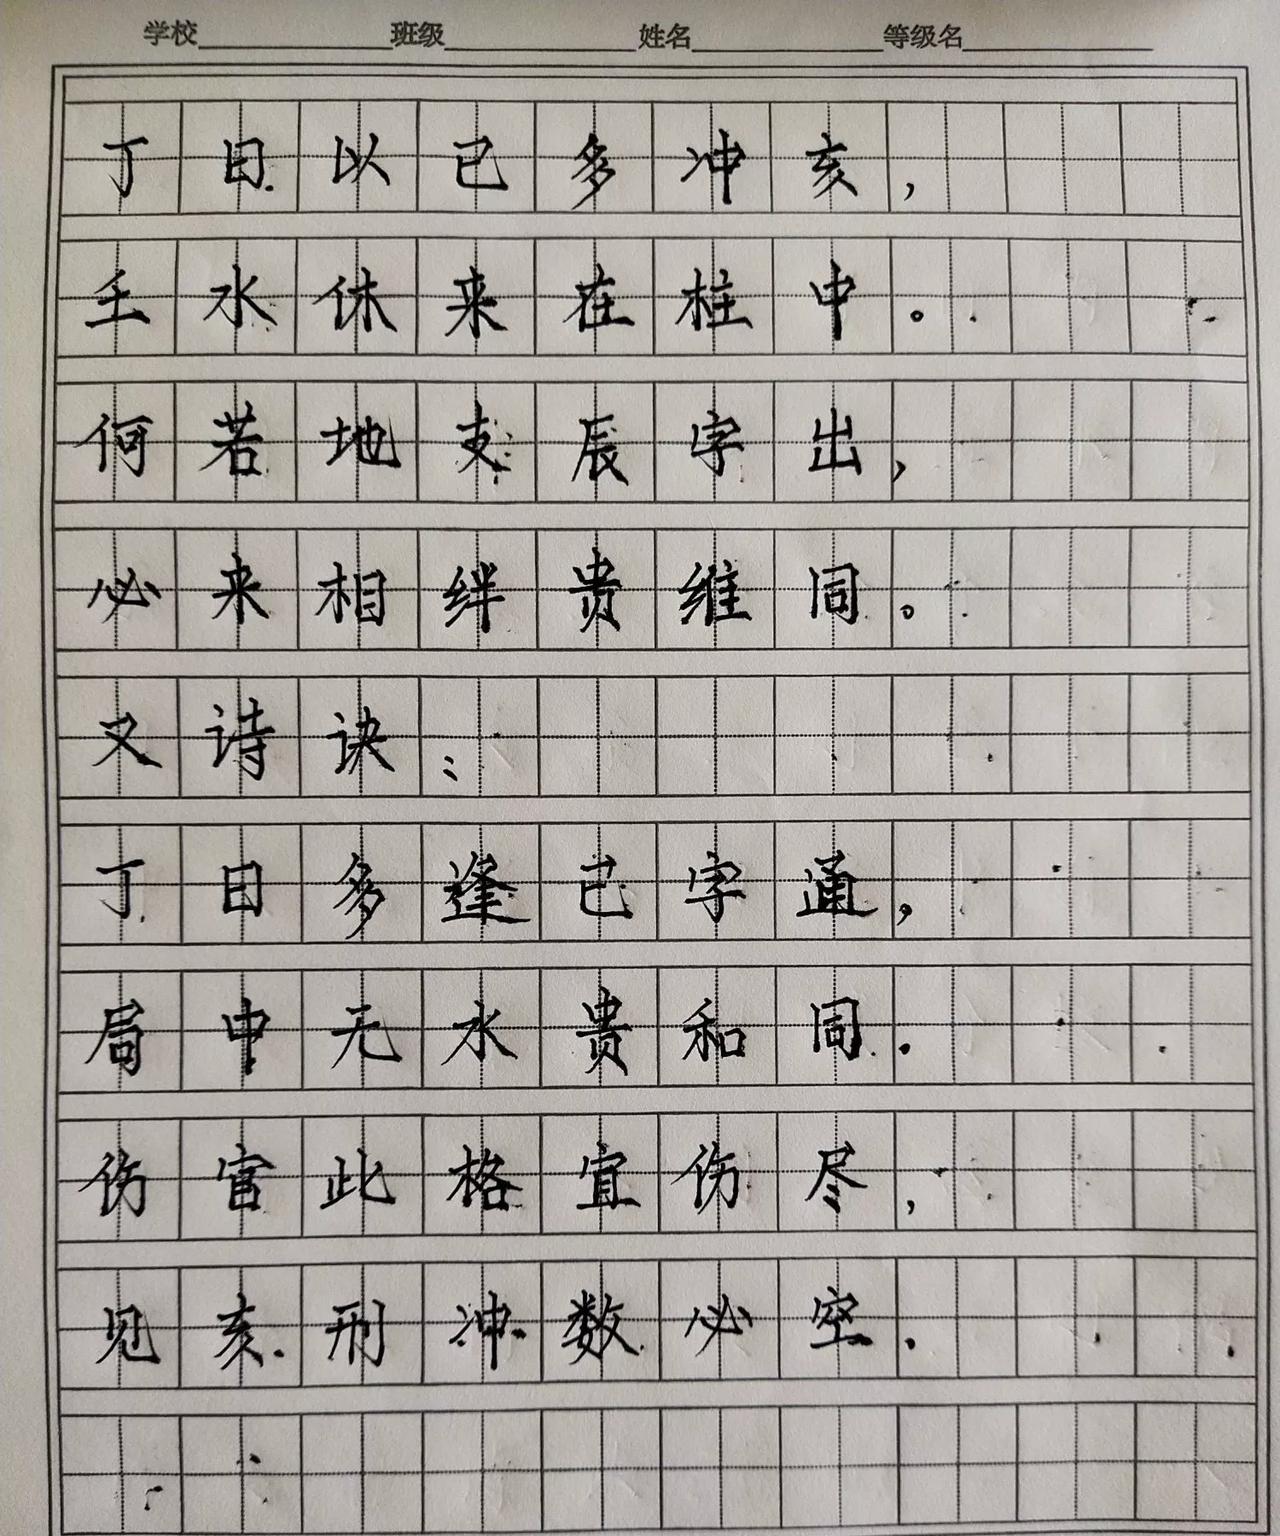 学校 班级 姓名 等级名
丁日以已多冲亥，
壬水休来在柱中。
何若地支辰字出，
必来相绊贵维同。
又诗诀：
丁日多逢已字通，
局中无水贵和同.
伤官此格宜伤尽，
见亥刑冲数必空.